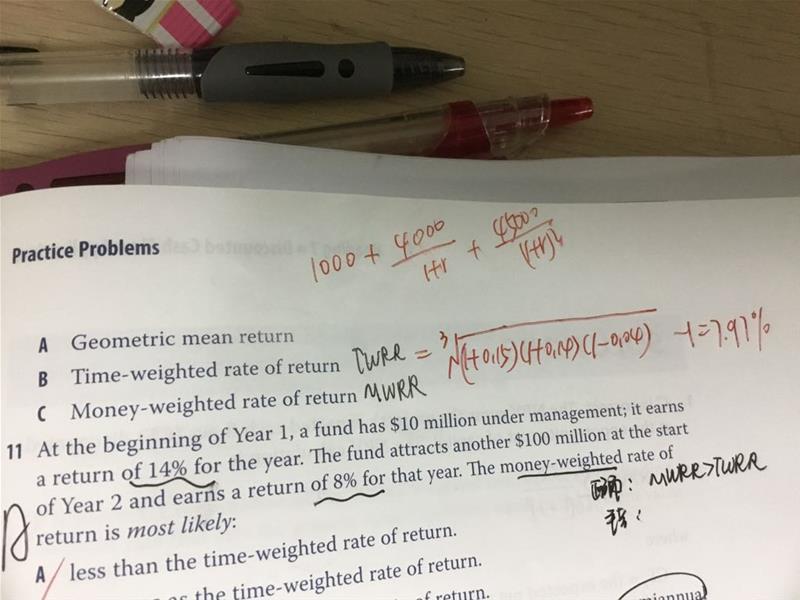 Practice Problems
1000 + 4000/1+r + 4500/(1+r)
A Geometric mean return
B Time-weighted rate of return TWRR = ³√(1+0.15)(1+0.14)(1-0.04) -1=7.97%
C Money-weighted rate of return MWRR
11 At the beginning of Year 1, a fund has $10 million under management; it earns
a return of 14% for the year. The fund attracts another $100 million at the start
of Year 2 and earns a return of 8% for that year. The money-weighted rate of
return is most likely:
MWRR>TWRR
A less than the time-weighted rate of return.
as the time-weighted rate of return.
of return.